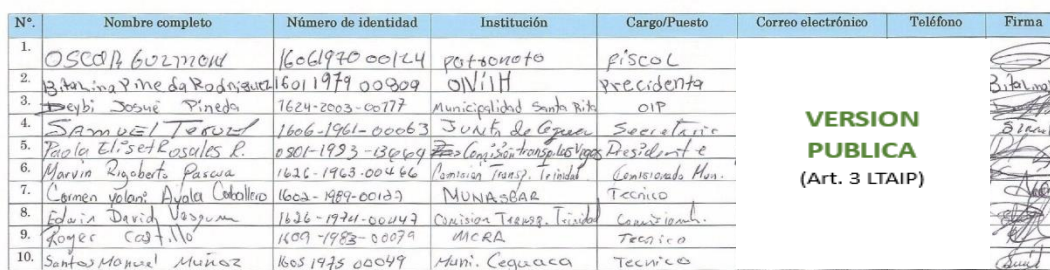 N°. Nombre completo Número de identidad Institución Cargo/Puesto Correo electrónico Teléfono Firma
1. OSCAR GUZMAN 1606197000124 patronato fiscol
2. Bitalina Pineda Rodriguez 1601197900809 Precidenta
3. Deybi Josué Pineda 1624-2003-00777 Municipalidad Santa Rita OIP
4. SAMUEL TERUEL 1606-1961-00063 Junta de Agua Secretario
5. Paola Eliset Rosales R. 0501-1993-13669 Comisión transp. las Vegas Presidente
6. Marvin Rigoberto Pascua 1626-1963-00466 Comision Transp. Trinidad Comisionado Mun.
7. Carmen Yolani Ayala Caballero 1602-1989-00127 MUNASBAR Tecnico
8. Edwin David 1626-1974-00447 Comision Transp. Trinidad
9. Roger Castillo 1609-1983-00079 MCRA Tecnico
10. Santos Manuel Muñoz 1605 1975 00049 Muni. Ceguaca Tecnico
VERSION
PUBLICA
(Art. 3 LTAIP)